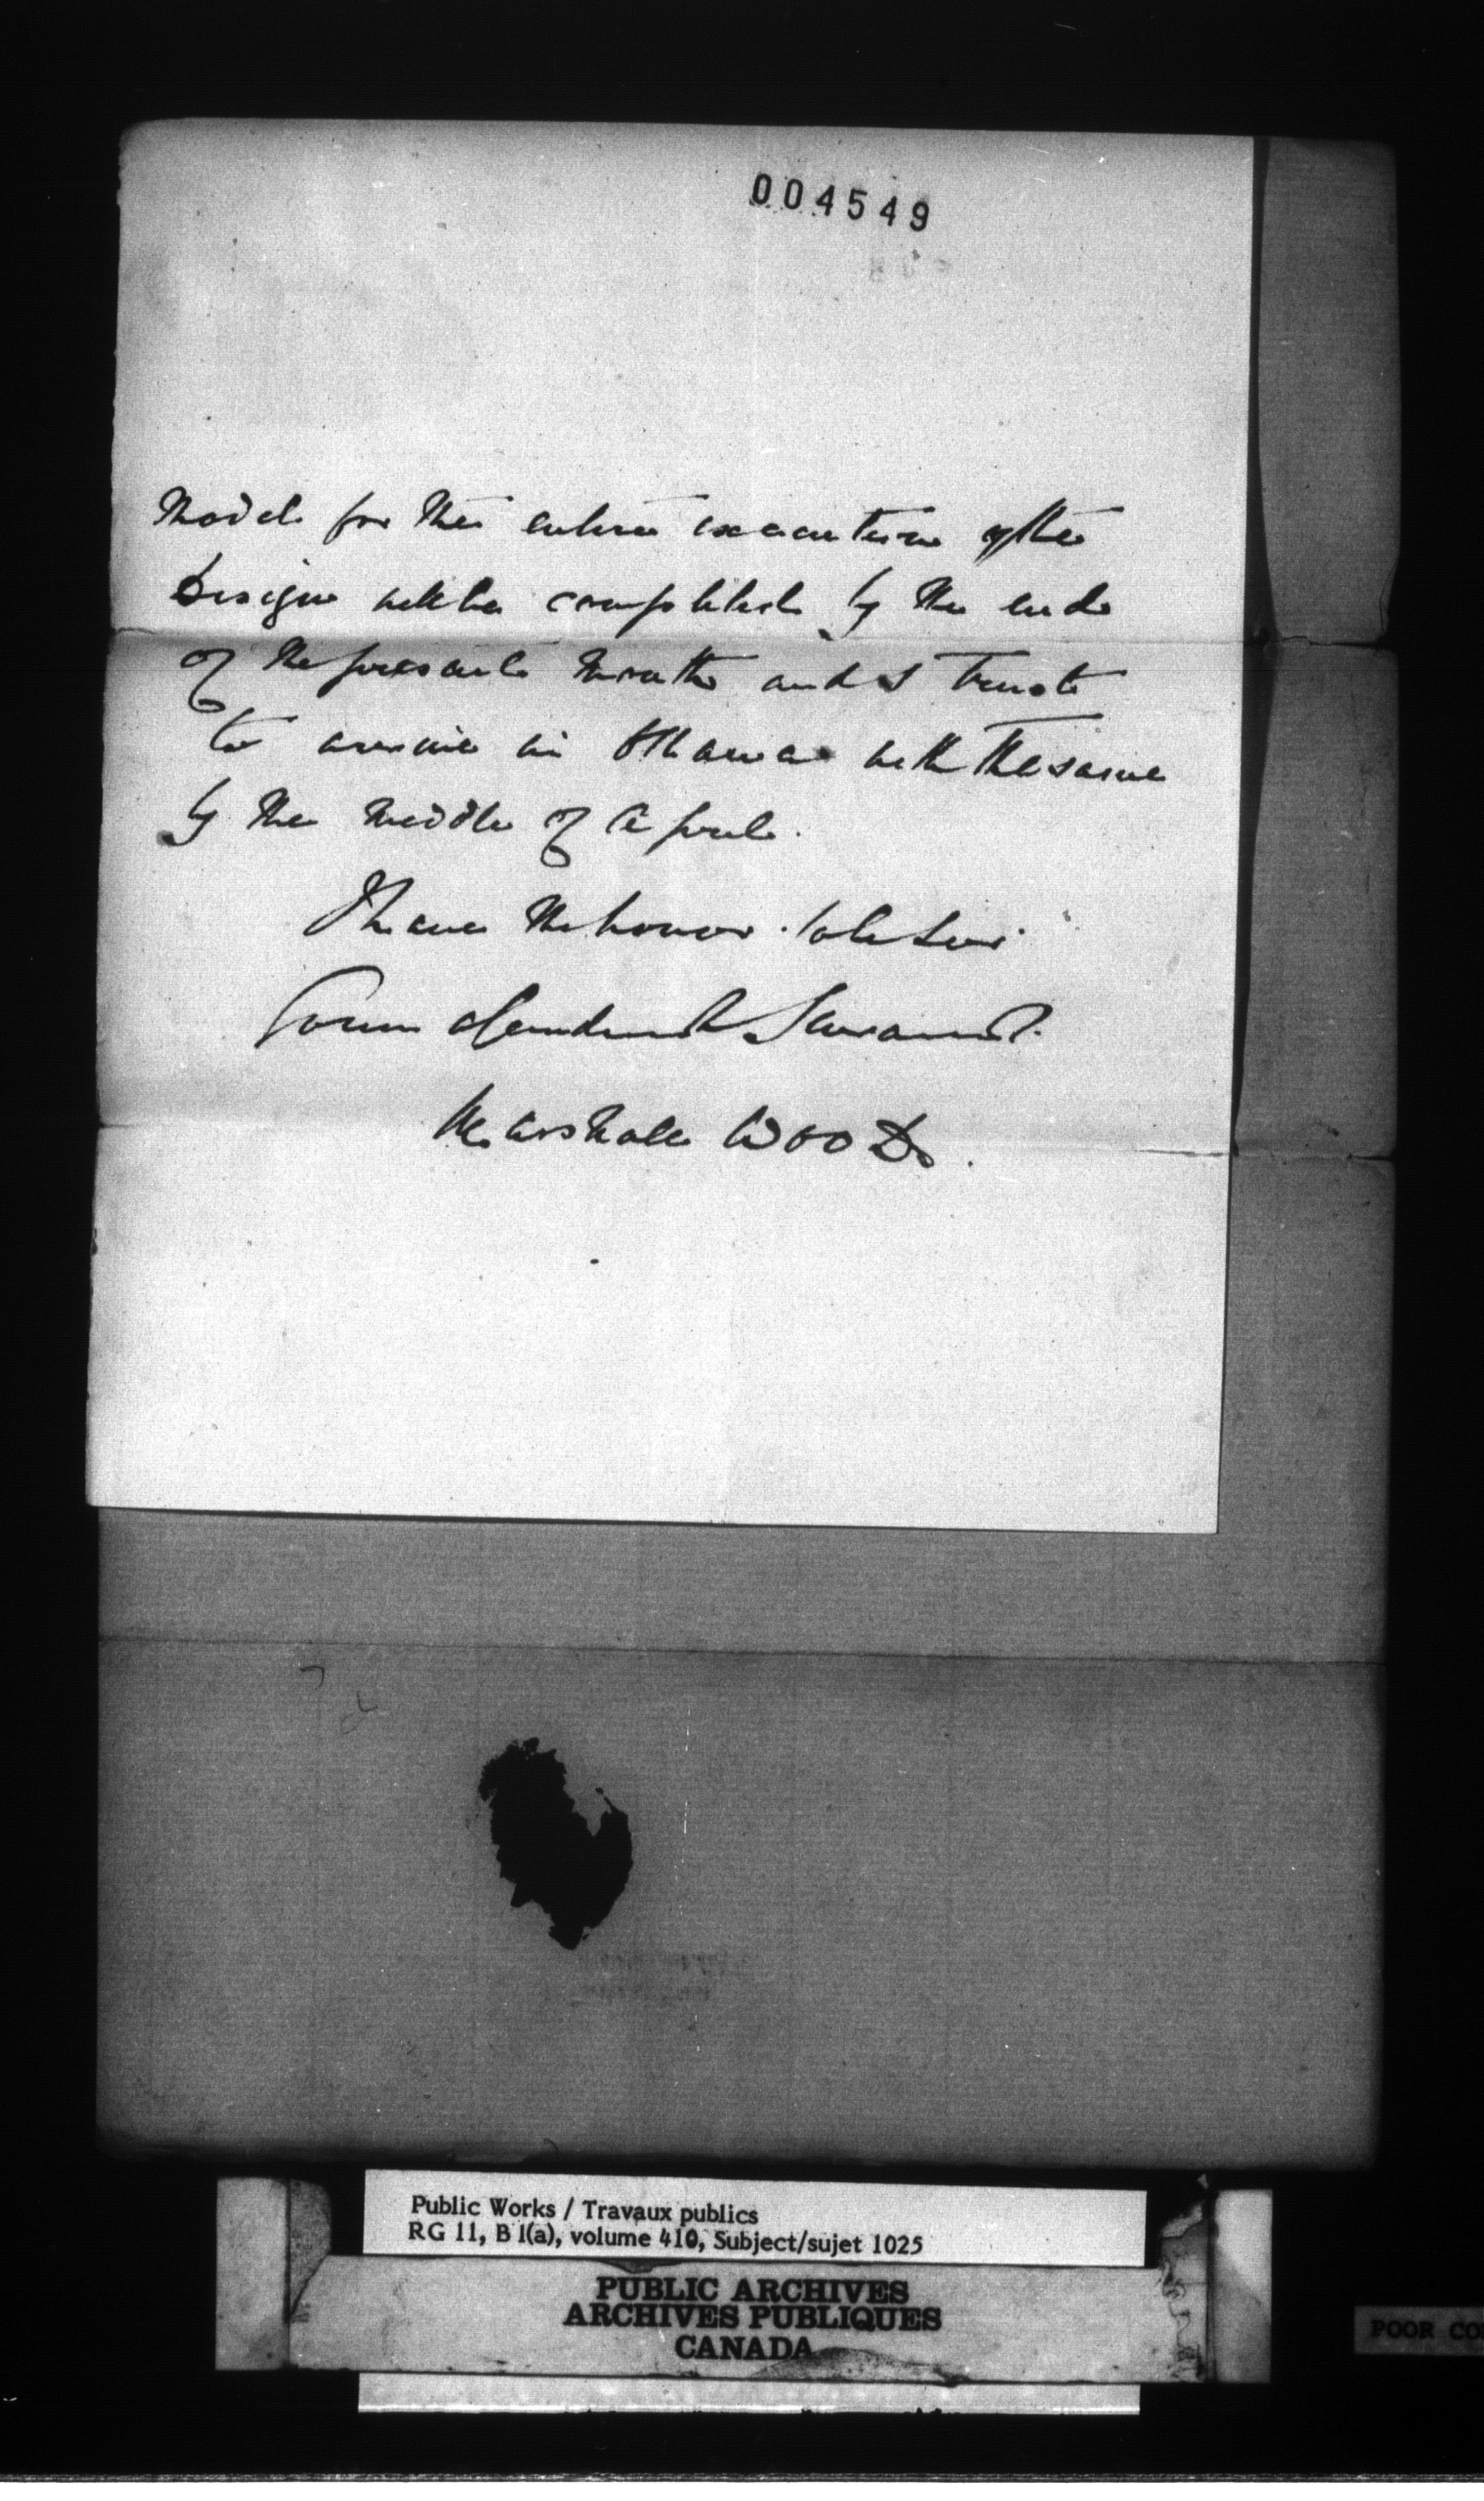 004549
Model for the entire execution of the
Design will be completed by the end
of the present Month and I trust
to arrive in Ottawa with the same
by the Middle of April.
I have the honor to be Sir
Your obedient Servant.
Marshall Wood.
Public Works / Travaux publics
RG 11, B 1(a), volume 410, Subject/sujet 1025
PUBLIC ARCHIVES
ARCHIVES PUBLIQUES
CANADA
POOR CO